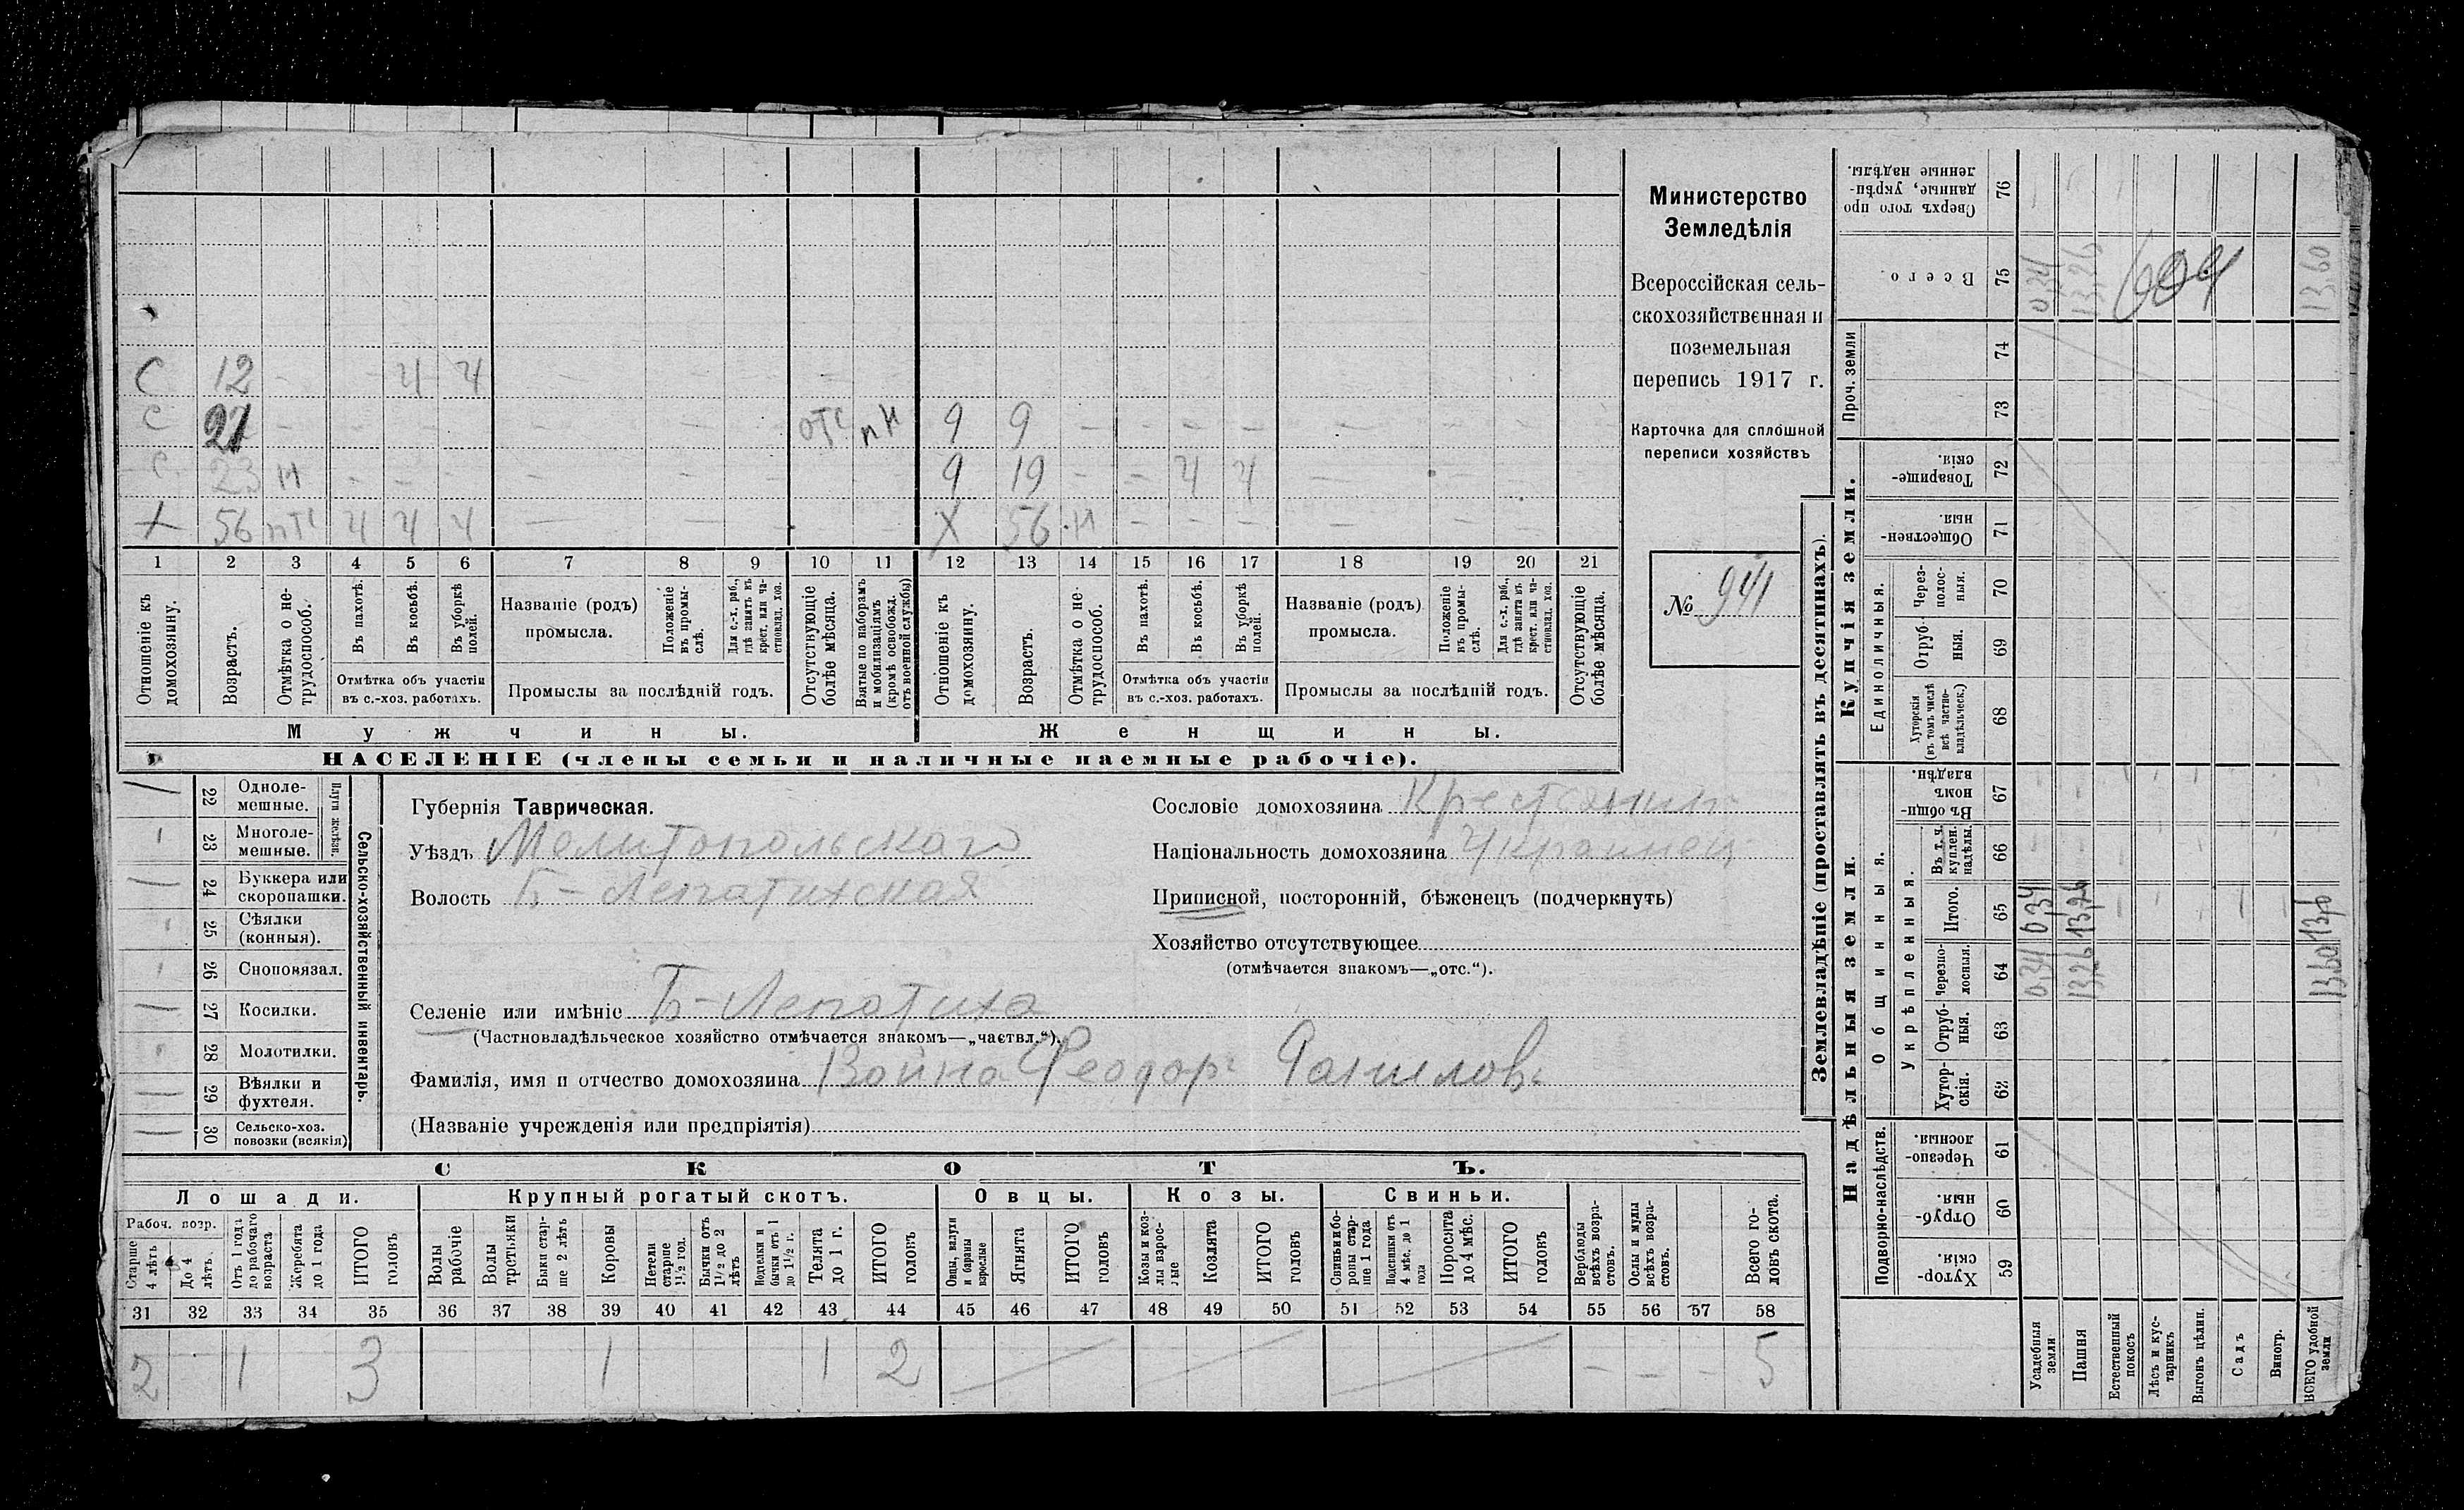 С 12 - - ч ч - - - - -
С 21 - - - - - - - отс пн 9 9 - - - - - - - -
С 23 н - - - - - - 9 19 - - ч ч - - -
Х 56 птс ч ч ч - - - - - Х 56 н - - - - - - -
1 2 3 4 5 6 7 8 9 10 11 12 13 14 15 16 17 18 19 20 21
Отношеніе къ домохозяину.
Возрастъ.
Отмѣтка о не-
трудоспособ.
Въ пахотѣ.
Въ косьбѣ.
Въ уборкѣ полей.
Отмѣтка объ участіи
въ с.-хоз. работахъ.
Названіе (родъ)
промысла.
Положеніе
въ промы-
слѣ.
Для с.-х. раб.,
гдѣ занятъ въ
крест. или ча-
стновлад. хоз.
Промыслы за послѣдній годъ.
Отсутствующіе
болѣе мѣсяца.
Взятые по наборамъ
и мобилизаціямъ
(кромѣ освобожд.
отъ военной службы)
Отношеніе къ
домохозяину.
Возрастъ.
Отмѣтка о не-
трудоспособ.
Въ пахотѣ.
Въ косьбѣ.
Въ уборкѣ
полей.
Отмѣтка объ участіи
въ с.-хоз. работахъ.
Названіе (родъ)
промысла.
Положеніе
въ промы-
слѣ.
Для с.-х. раб.,
гдѣ занята въ
крест. или ча-
стновлад. хоз.
Промыслы за послѣдній годъ.
Отсутствующіе
болѣе мѣсяца.
Мужчины.
Женщины.
НАСЕЛЕНІЕ (члены семьи и наличные наемные рабочіе).
Министерство
Земледѣлія
Всероссійская сель-
скохозяйственная и
поземельная
перепись 1917 г.
Карточка для сплошной
переписи хозяйствъ
№ 941
22 Одноле-
мешные.
23 Многоле-
мешные.
Плуги желѣзн.
24 Буккера или
скоропашки.
25 Сѣялки
(конныя).
26 Сноповязал.
27 Косилки.
28 Молотилки.
29 Вѣялки и
фухтеля.
30 Сельско-хоз.
повозки (всякія)
Сельско-хозяйственный инвентарь.
Губернія Таврическая.
Уѣздъ Мелитопольскаго
Волость Б-Лепатихская
Селеніе или имѣніе Б-Лепатиха
(Частновладѣльческое хозяйство отмѣчается знакомъ—„частвл.“).
Фамилія, имя и отчество домохозяина Война Феодор Данилов
(Названіе учрежденія или предпріятія)
Сословіе домохозяина Крестьянинъ
Національность домохозяина Украинец
Приписной, посторонній, бѣженецъ (подчеркнуть)
Хозяйство отсутствующее
(отмѣчается знакомъ—„отс.“).
СКОТЪ.
Лошади.
Крупный рогатый скотъ.
Овцы.
Козы.
Свиньи.
Рабоч. возр.
Старше
4 лѣтъ
До 4
лѣтъ.
Отъ 1 года
до рабочаго
возраста
Жеребята
до 1 года
ИТОГО
головъ
Волы
рабочіе
Волы
третьяки
Быки стар-
ше 2 лѣтъ
Коровы
Нетели
старше
1½ год.
Бычки отъ
1½ до 2
лѣтъ
Подтелки и
бычки отъ 1
до 1½ г.
Телята
до 1 г.
ИТОГО
головъ
Овцы, валухи
и бараны
взрослые
Ягнята
ИТОГО
головъ
Козы и коз-
лы взрос-
лые
Козлята
ИТОГО
головъ
Свиньи и бо-
ровы стар-
ше 1 года
Подсвинки отъ
4 мѣс. до 1
года
Поросята
до 4 мѣс.
ИТОГО
головъ
Верблюды
всѣхъ возра-
стовъ.
Ослы и мулы
всѣхъ возра-
стовъ.
Всего го-
ловъ скота.
31 32 33 34 35 36 37 38 39 40 41 42 43 44 45 46 47 48 49 50 51 52 53 54 55 56 57 58
2 1 3 1 1 2 - - - 5
Землевладѣніе (проставлять въ десятинахъ).
Сверхъ того про
данные, укрѣп-
ленные надѣлы.
76
Всего.
75 0,34 13,26 13,60
604
Проч. земли
74
73
Купчія земли.
Товарище-
скія.
72
Обществен-
ныя.
71
Единоличныя.
Через-
полос-
ныя.
70
Отруб-
ныя.
69
Хуторскія
(въ томъ числѣ
всѣ частно-
владѣльческ.)
68
Надѣльныя земли.
Общинныя.
Въ общин-
номъ
владѣн.
67
Укрѣпленныя.
Въ т. ч.
куплен.
надѣлы.
66
Итого.
65 0,34 13,26 13,60
Черезпо-
лосныя.
64 0,34 13,26 13,60
Отруб-
ныя.
63
Хутор-
скія.
62
Подворно-наслѣдств.
Черезпо-
лосныя.
61
Отруб-
ныя.
60
Хутор-
скія.
59
Усадебныя
земли
Пашня
Естественный
покосъ
Лѣсъ и кус-
тарникъ
Выгонъ цѣлин.
Садъ
Виногр.
ВСЕГО удобной
земли